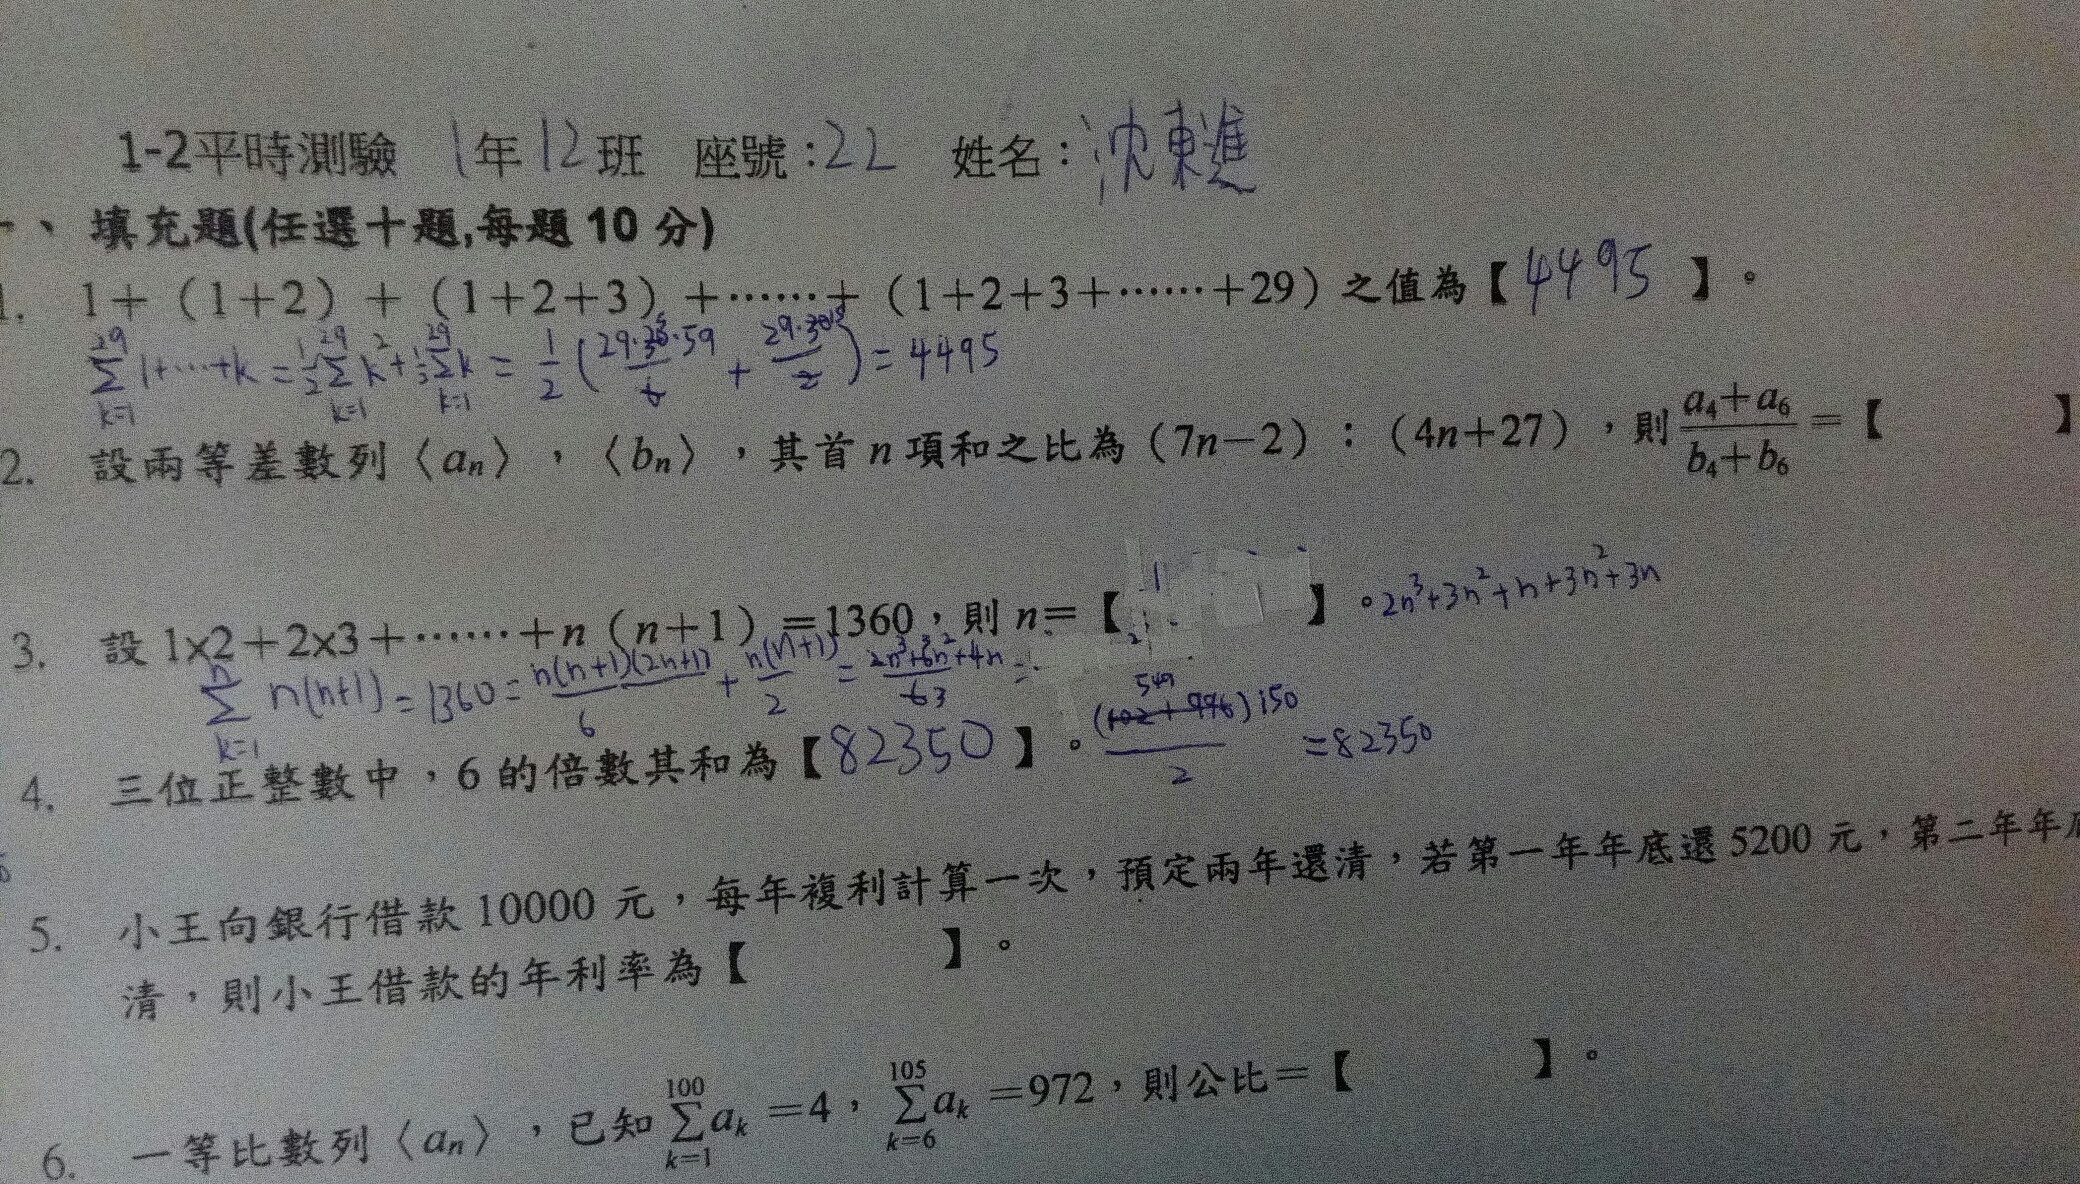 1-2平時測驗 1年12班 座號:22 姓名:沈東進
一、填充題(任選十題,每題 10 分)
1. 1+(1+2)+(1+2+3)+……+(1+2+3+……+29)之值為【4495】。
\sum_{k=1}^{29} 1+…+k = \frac{1}{2}\sum_{k=1}^{29} k^2 + \frac{1}{2}\sum_{k=1}^{29} k = \frac{1}{2}(\frac{29·30·59}{6} + \frac{29·30}{2}) = 4495
2. 設兩等差數列〈aₙ〉,〈bₙ〉,其首 n 項和之比為(7n−2):(4n+27),則 \frac{a₄+a₆}{b₄+b₆} =【 】
3. 設 1×2+2×3+……+n(n+1)=1360,則 n=【 】。2n³+3n²+n+3n²+3n
\sum_{k=1}^{n} n(n+1) = 1360 = \frac{n(n+1)(2n+1)}{6} + \frac{n(n+1)}{2} = \frac{2n³+6n²+4n}{63} =
4. 三位正整數中,6 的倍數其和為【82350】。\frac{(102+996)150}{2} = 82350
549
5. 小王向銀行借款 10000 元,每年複利計算一次,預定兩年還清,若第一年年底還 5200 元,第二年年
清,則小王借款的年利率為【 】。
6. 一等比數列〈aₙ〉,已知 \sum_{k=1}^{100} a_k =4,\sum_{k=6}^{105} a_k =972,則公比=【 】。